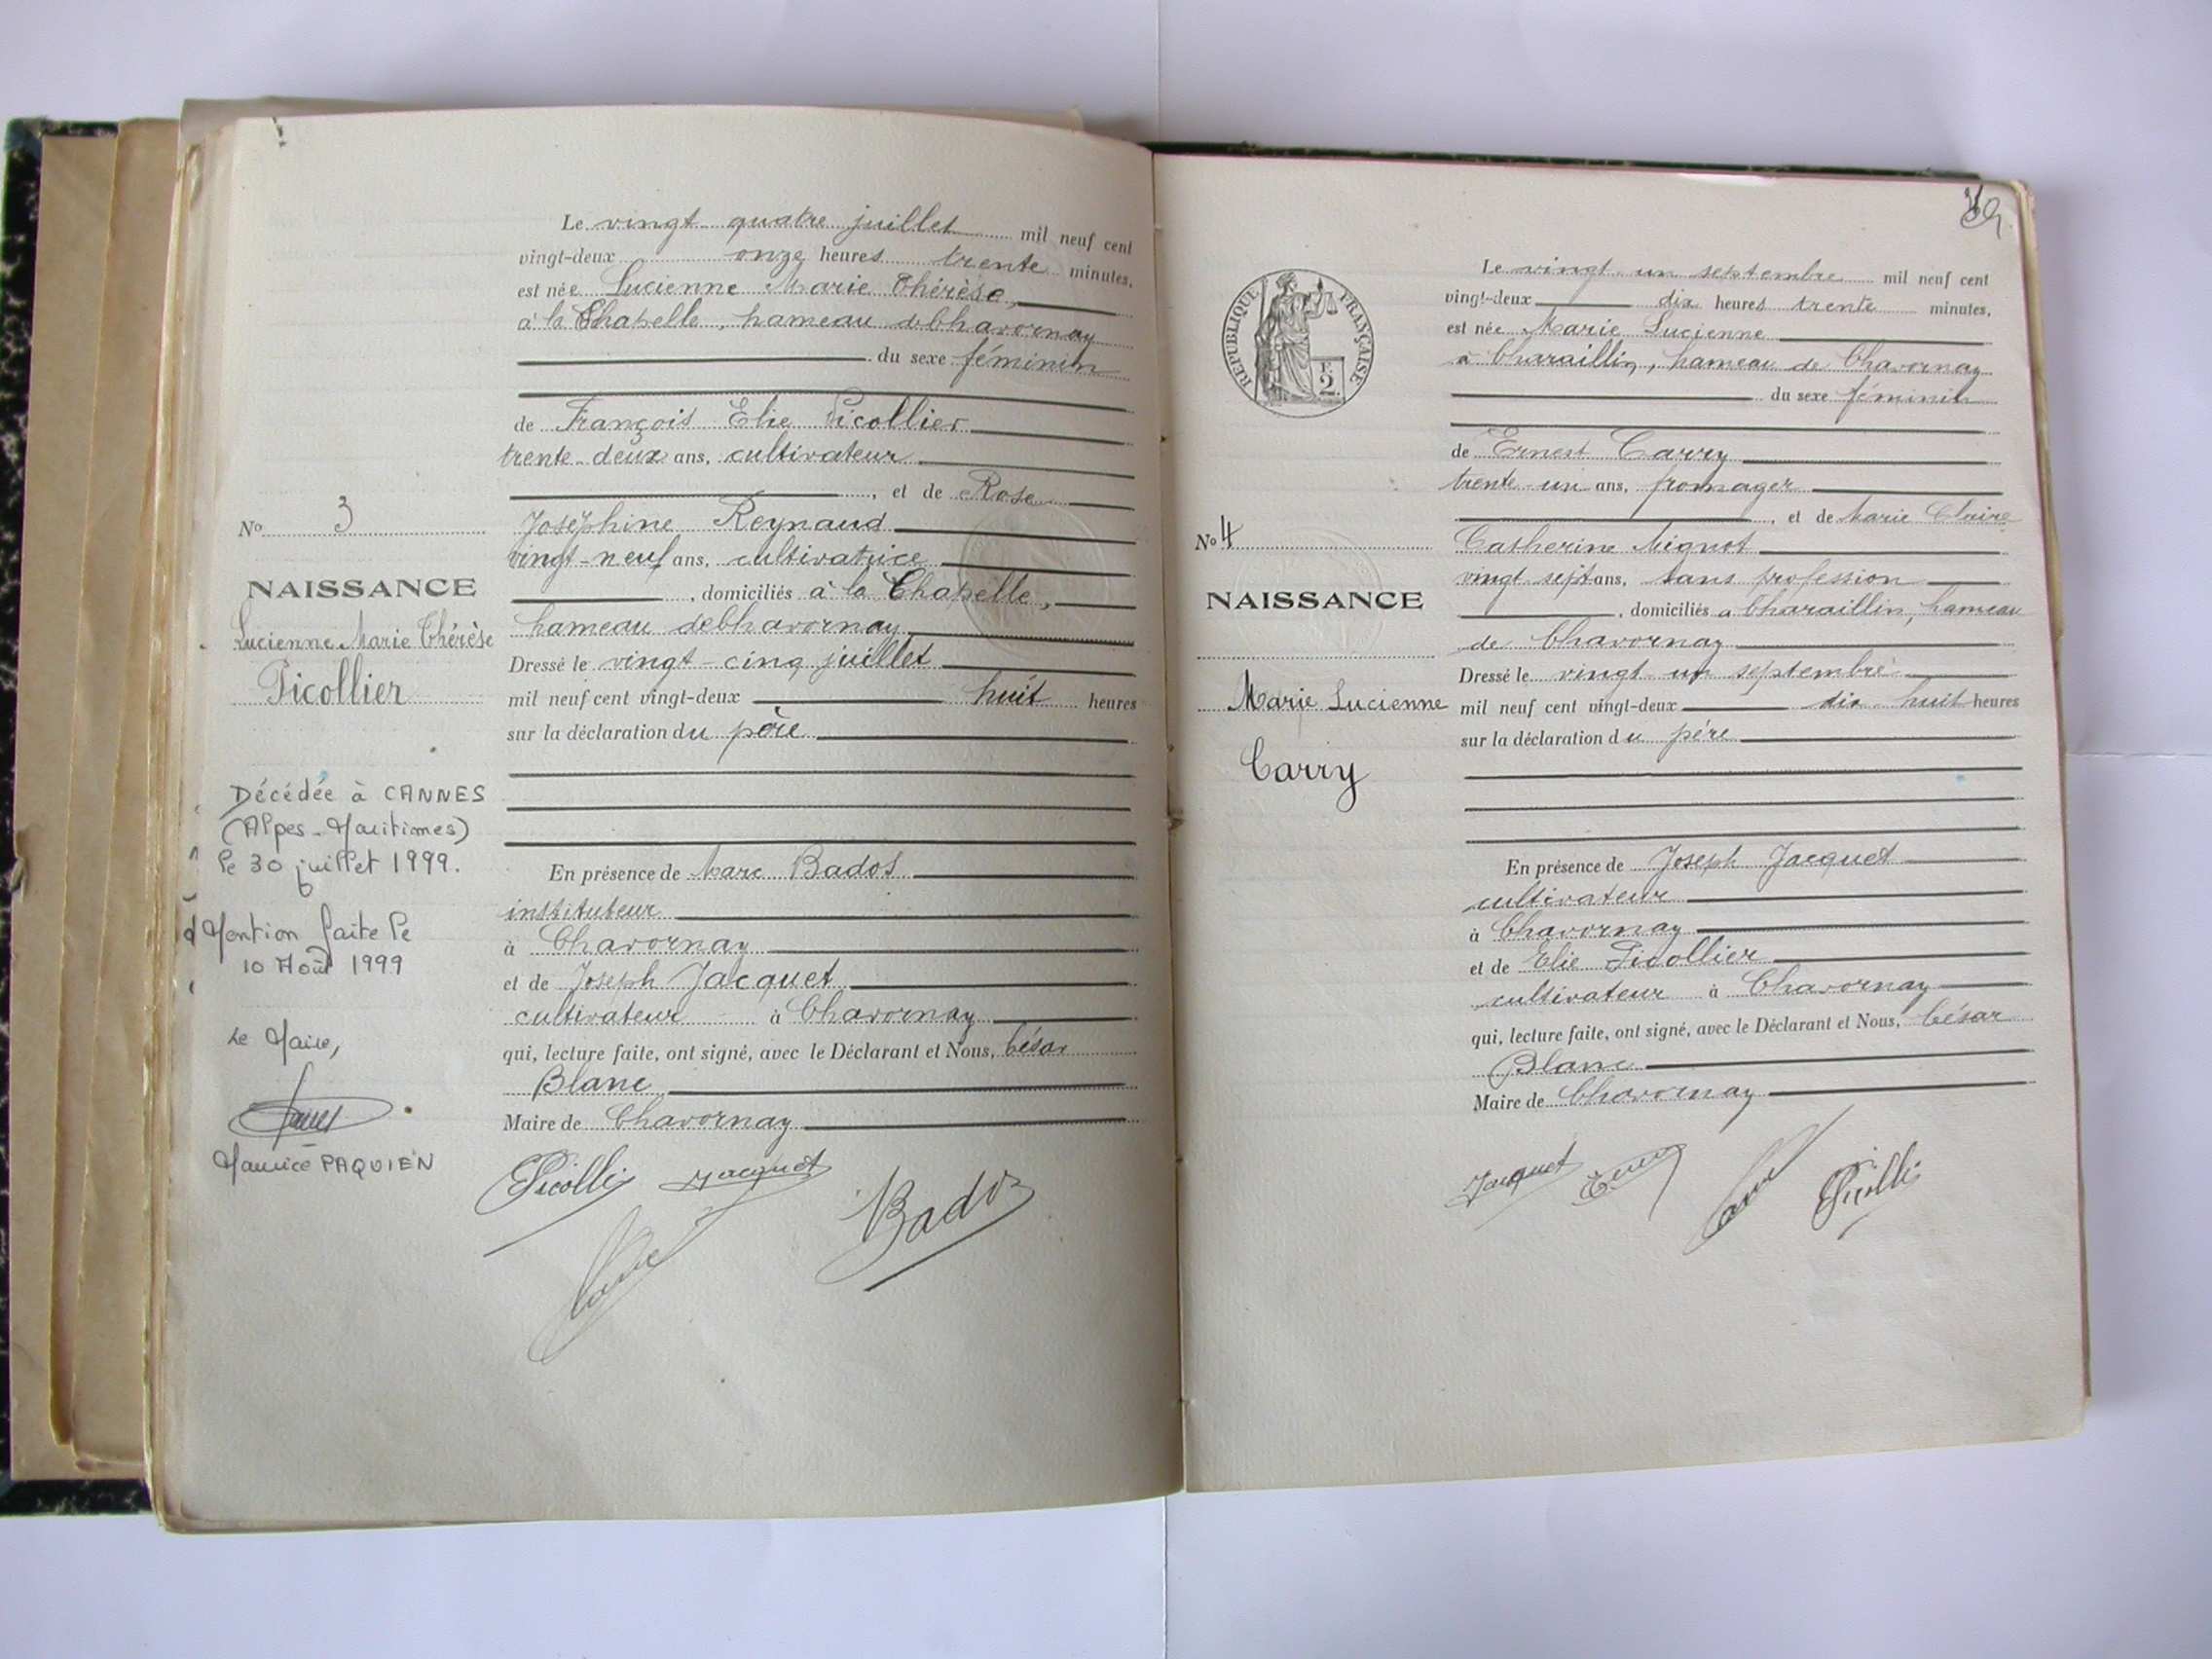 Le vingt quatre juillet mil neuf cent
vingt-deux onze heures trente minutes,
est née Lucienne Marie Thérèse,
à la Chapelle, hameau de Chavornay
du sexe féminin
de François Elie Picollier
trente-deux ans, cultivateur
, et de Rose
Joséphine Reynaud
vingt-neuf ans, cultivatrice
, domiciliés à la Chapelle,
hameau de Chavornay
Dressé le vingt-cinq juillet
mil neuf cent vingt-deux huit heures
sur la déclaration du père
En présence de Marc Bados
instituteur
à Chavornay
et de Joseph Jacquet
cultivateur à Chavornay
qui, lecture faite, ont signé, avec le Déclarant et Nous, César
Blanc
Maire de Chavornay
Picolli Jacquet
Bados
No 3
NAISSANCE
Lucienne Marie Thérèse
Picollier
Décédée à CANNES
(Alpes-Maritimes)
le 30 juillet 1999.
Mention faite le
10 Août 1999
Le Maire,
Maurice PAQUIEN
RÉPUBLIQUE FRANÇAISE
2
Le vingt un septembre mil neuf cent
vingt-deux dix heures trente minutes,
est née Marie Lucienne
à Charaillin, hameau de Chavornay
du sexe féminin
de Ernest Carry
trente-un ans, fromager
, et de Marie Claire
Catherine Mignot
vingt-sept ans, sans profession
, domiciliés à Charaillin, hameau
de Chavornay
Dressé le vingt un septembre
mil neuf cent vingt-deux dix huit heures
sur la déclaration du père
En présence de Joseph Jacquet
cultivateur
à Chavornay
et de Elie Picollier
cultivateur à Chavornay
qui, lecture faite, ont signé, avec le Déclarant et Nous, César
Blanc
Maire de Chavornay
Jacquet Picolli
No 4
NAISSANCE
Marie Lucienne
Carry